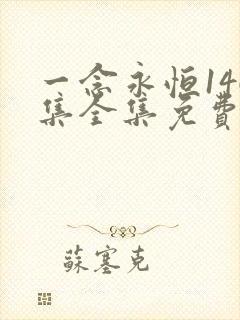 一念永恒14
集全集免费
苏塞克